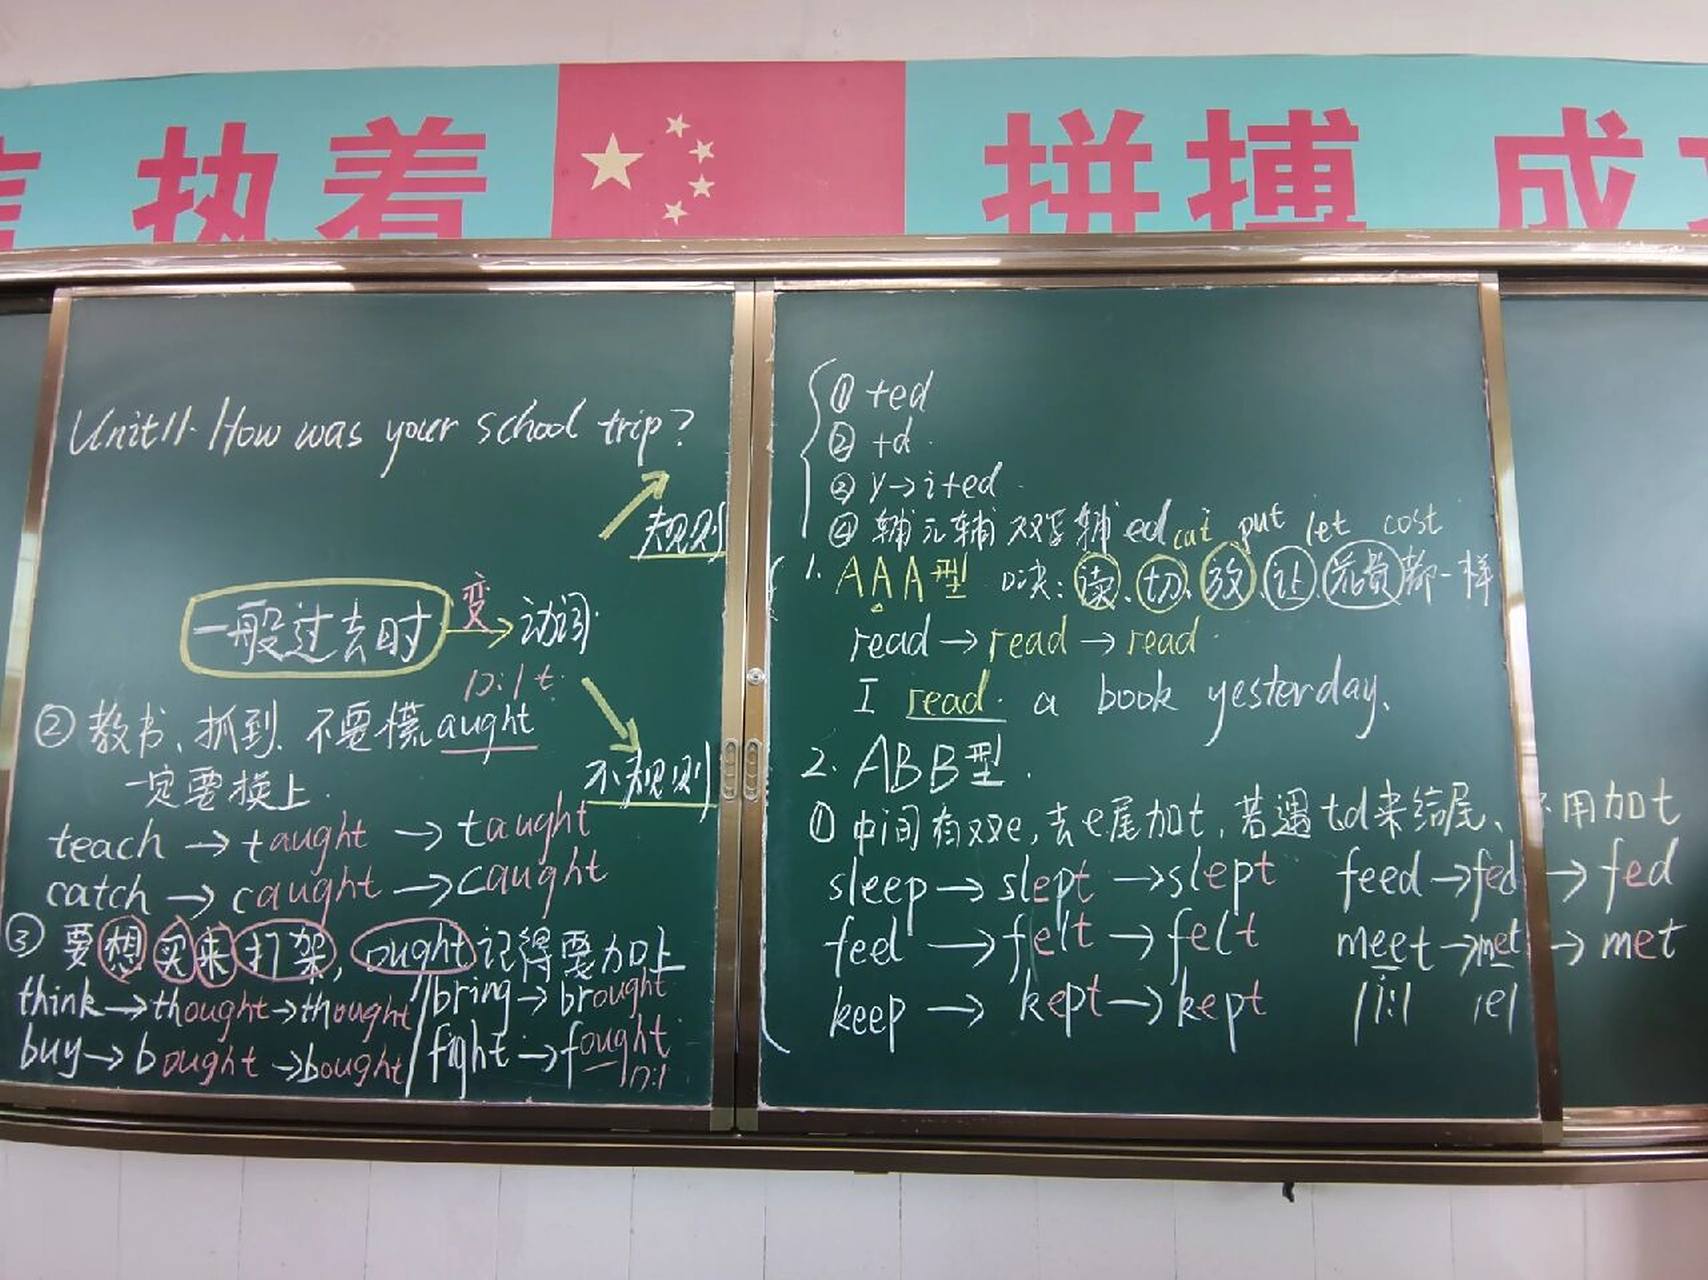 执着 拼搏 成
Unit11. How was your school trip?
规则
一般过去时 变 动词
不规则
② 教书、抓到、不要慌 aught
一定要换上.
teach → taught → taught
catch → caught → caught
③ 要想买来打架, ought 记得要加上
think → thought → thought / bring → brought
buy → bought → bought / fight → fought
① +ed
② +d.
③ y→i+ed.
④ 辅元辅 双写辅 ed
cut put let cost
1. AAA型 口决: 读、切、放、让、花费都一样
read → read → read.
I read a book yesterday.
2. ABB型.
① 中间有双e,去e尾加t,若遇td来结尾、不用加t
sleep → slept → slept feed → fed → fed
feel → felt → felt meet → met → met
keep → kept → kept /i:/ /e/